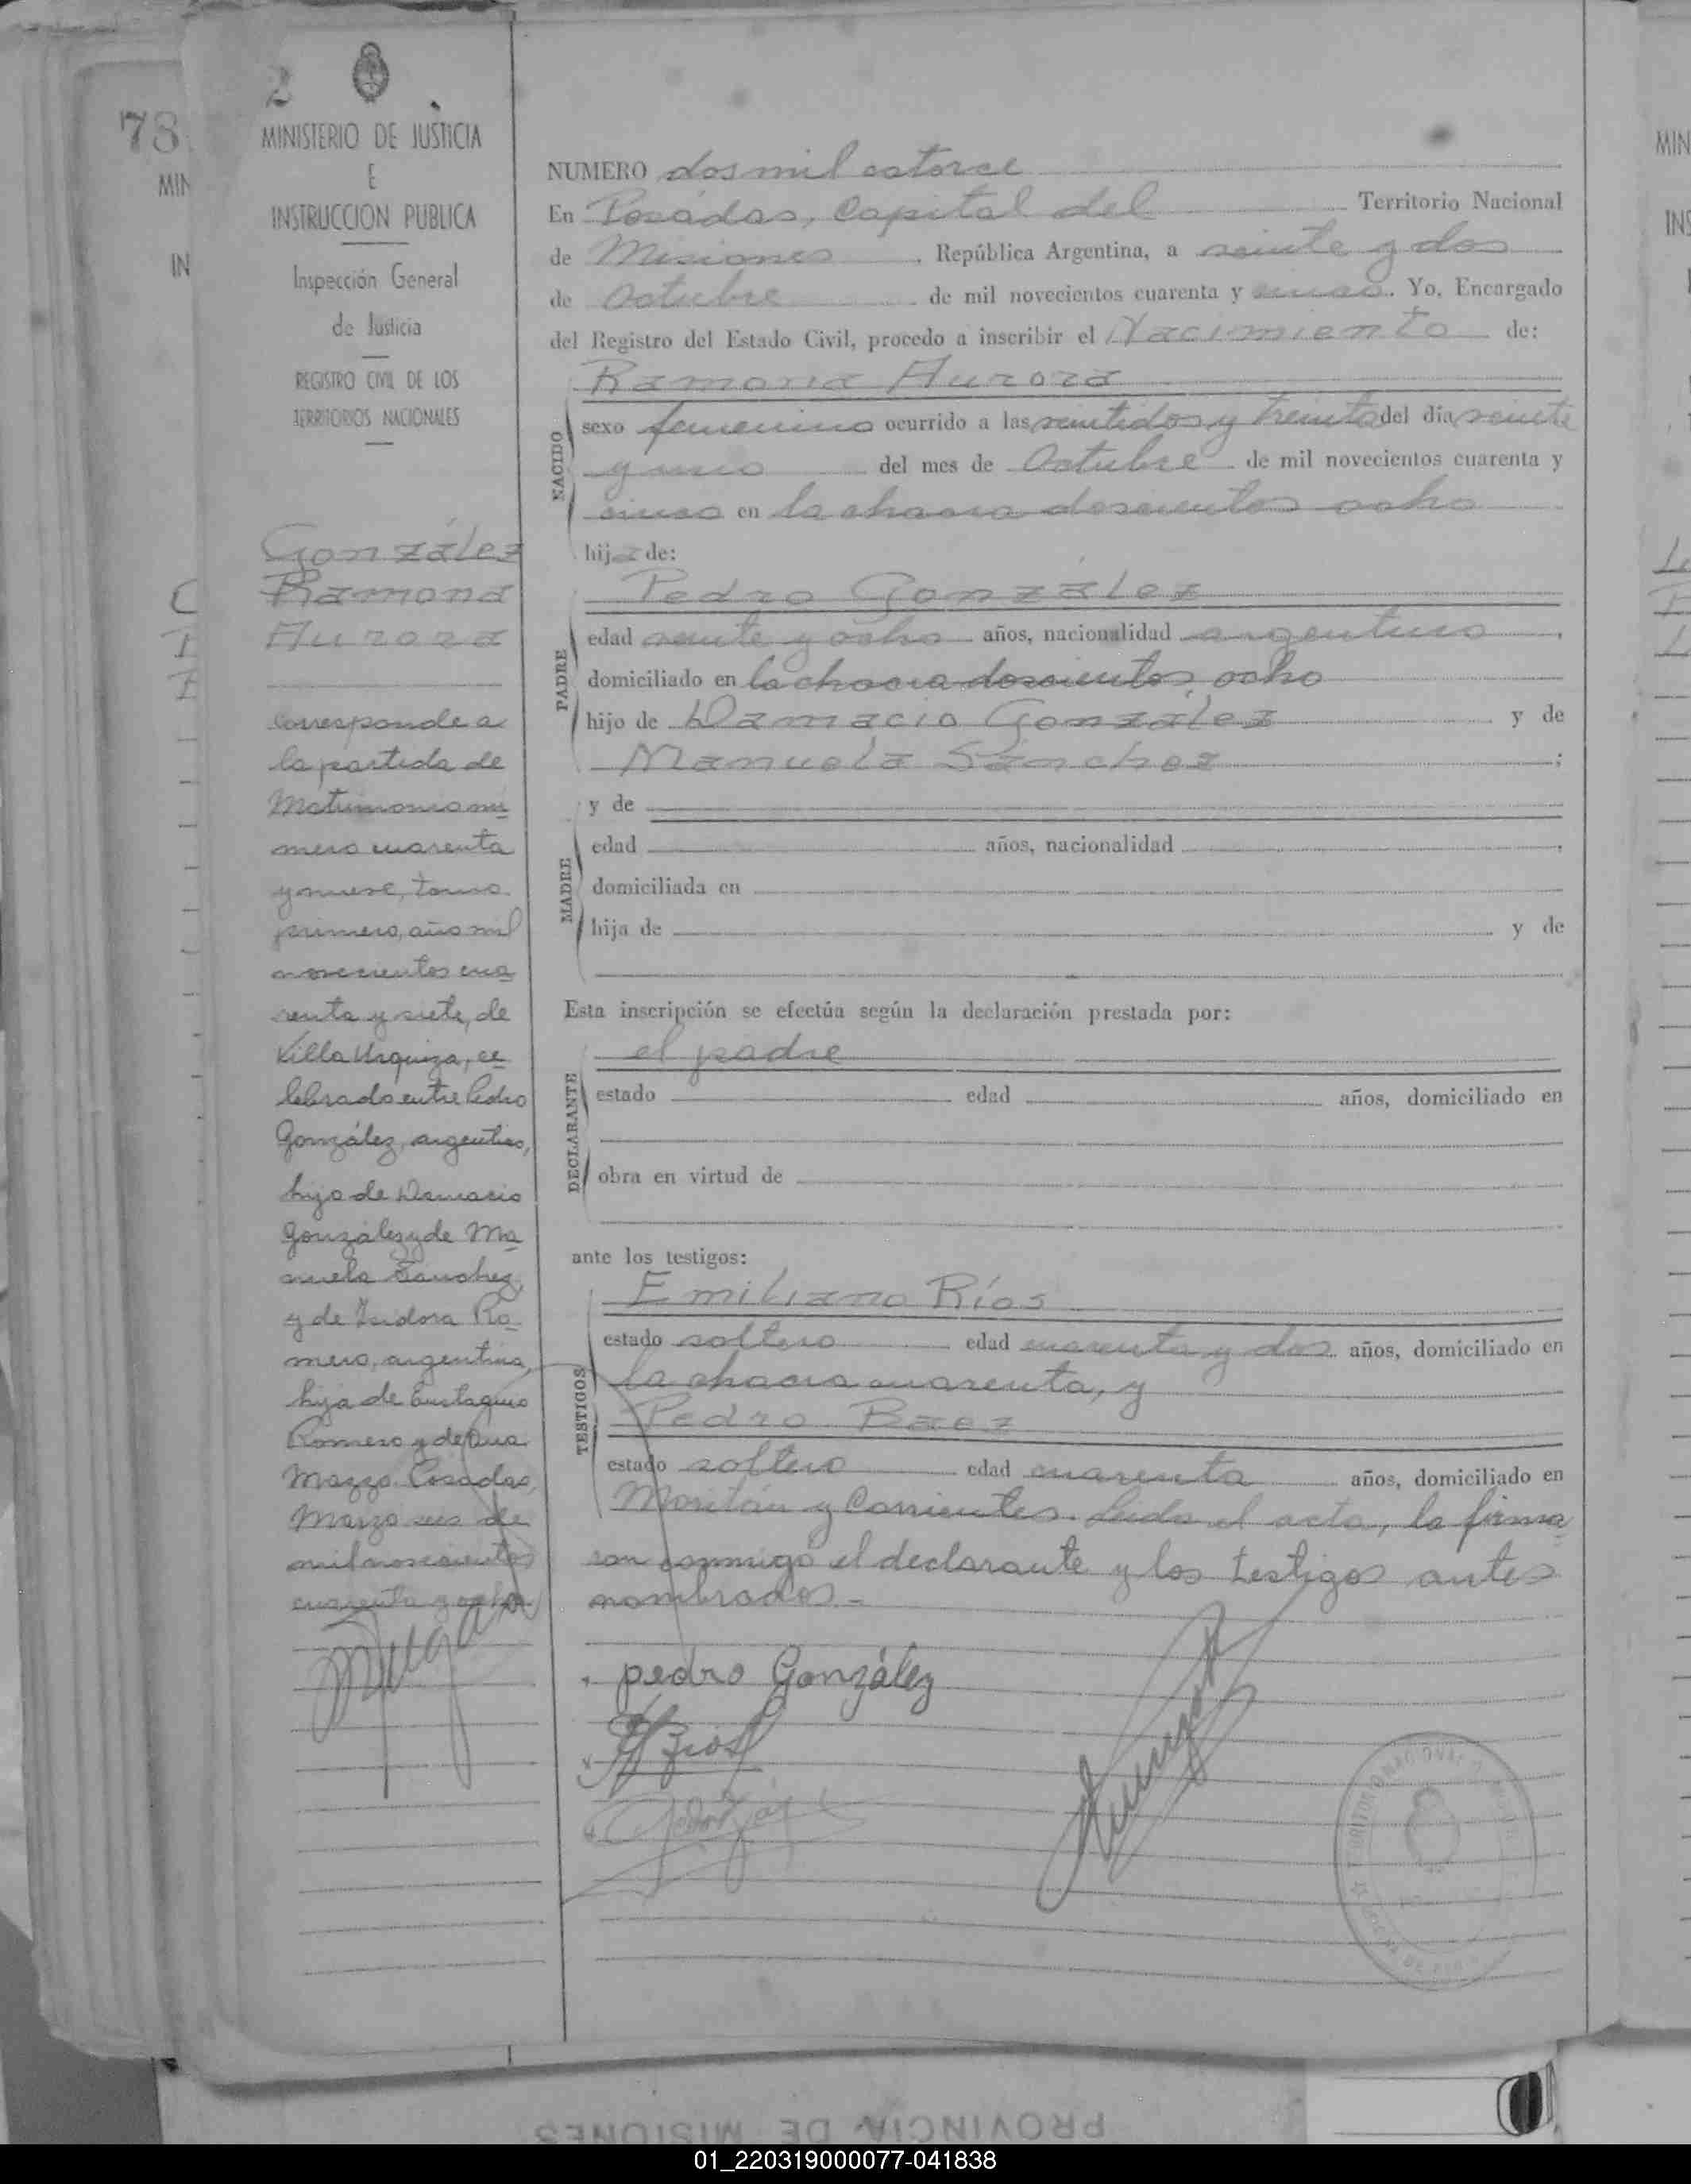 2
78
MINISTERIO DE JUSTICIA
E
INSTRUCCION PUBLICA
Inspección General
de Justicia
REGISTRO CIVIL DE LOS
TERRITORIOS NACIONALES
González
Ramona
Aurora
Corresponde a
la partida de
Matrimonio nú
mero cuarenta
y nueve, tomo
primero, año mil
novecientos cua
renta y siete, de
Villa Urquiza, ce
lebrado entre Pedro
González, argentino,
hijo de Damacio
González y de Ma
nuela Sanchez,
y de Isidora Ro
mero, argentina,
hija de Eustaquio
Romero y de Ana
Mazzo. Posadas,
Marzo seis de
mil novecientos
cuarenta y ocho
NUMERO dos mil catorce
En Posadas, Capital del Territorio Nacional
de Misiones, República Argentina, a veinte y dos
de Octubre de mil novecientos cuarenta y cinco. Yo, Encargado
del Registro del Estado Civil, procedo a inscribir el Nacimiento de:
Ramona Aurora
NACIDO
sexo femenino ocurrido a las veintidos y treinta del día veinte
y uno del mes de Octubre de mil novecientos cuarenta y
cinco en la chacra doscientos ocho
hija de:
Pedro González
PADRE
edad veinte y ocho años, nacionalidad argentino,
domiciliado en la chacra doscientos ocho
hijo de Damacio González y de
Manuela Sánchez;
y de
MADRE
edad años, nacionalidad,
domiciliada en
hija de y de
Esta inscripción se efectúa según la declaración prestada por:
el padre
DECLARANTE
estado edad años, domiciliado en
obra en virtud de
ante los testigos:
Emiliano Ríos
TESTIGOS
estado soltero edad cuarenta y dos años, domiciliado en
la chacra cuarenta, y
Pedro Baez
estado soltero edad cuarenta años, domiciliado en
y Corrientes. Leída el acta, la firma
ron conmigo el declarante y los testigos antes
nombrados.-
pedro González
Rios
MIN
IN
MIN
INS
PROVINCIA DE MISIONES
01_220319000077-041838